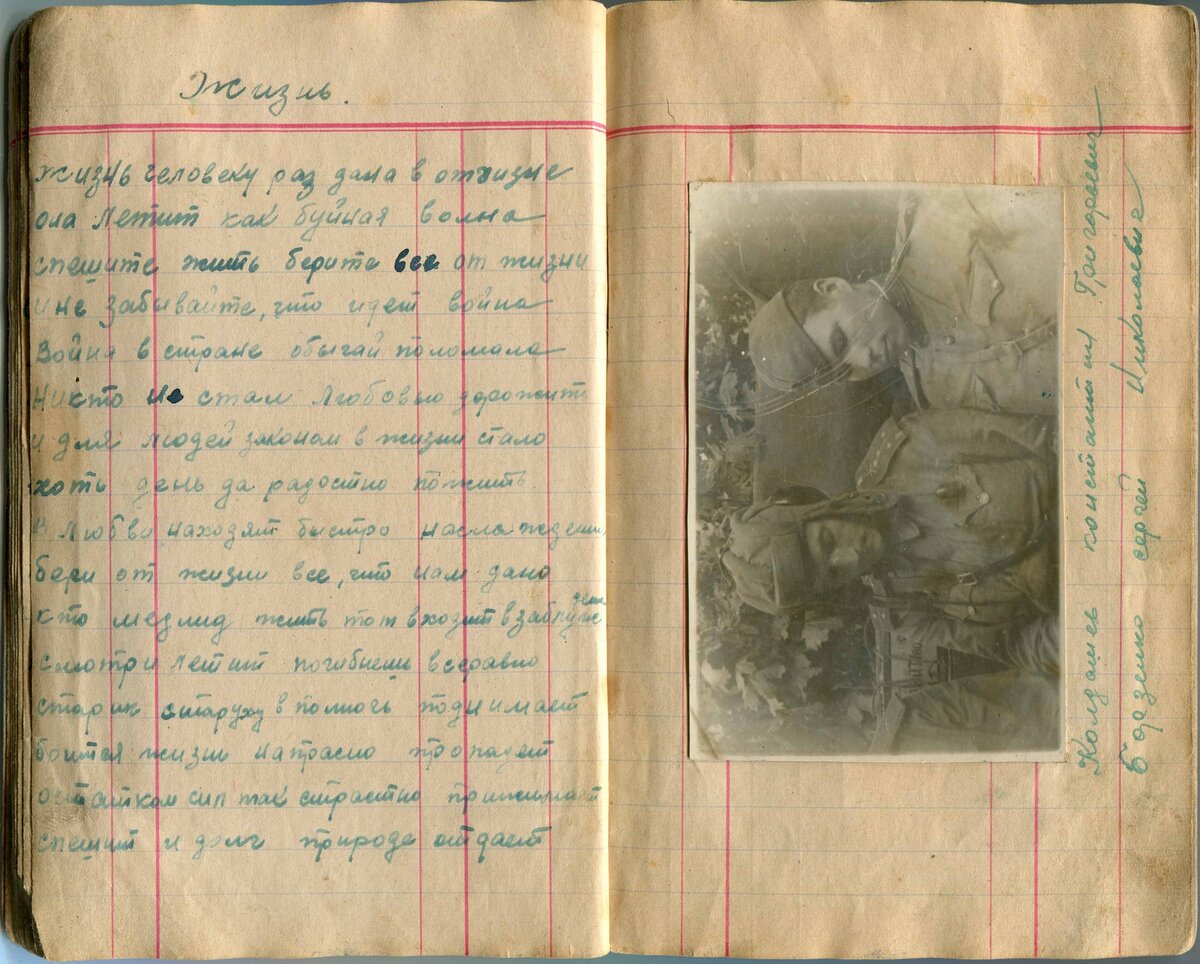 Жизнь.
жизнь человеку раз дана в отчизне
она летит как буйная волна
спешите жить берите все от жизни
и не забывайте, что идет война
Война в стране обычай поломала
Никто не стал любовью дорожить
и для людей законом в жизни стало
хоть день да радостно пожить.
В любви находят быстро наслаждении
бери от жизни все, что нам дано
кто медлид жить тот входит в заблуждение
смотри летит погибнешь всеравно
старик старуху в полночь поднимает
боится жизнь напрасно пропадет
остатком сил так страстно прижимает
спешит и долг природе отдает
константин Григорьевич
сергей Николаевич